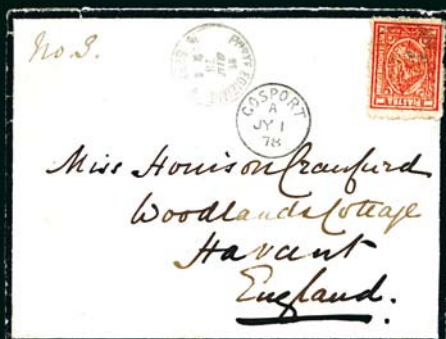 No 3.
GOSPORT
A
JY 1
78
Miss Honison Cranfurd
Woodlands Cottage
Havant
England.